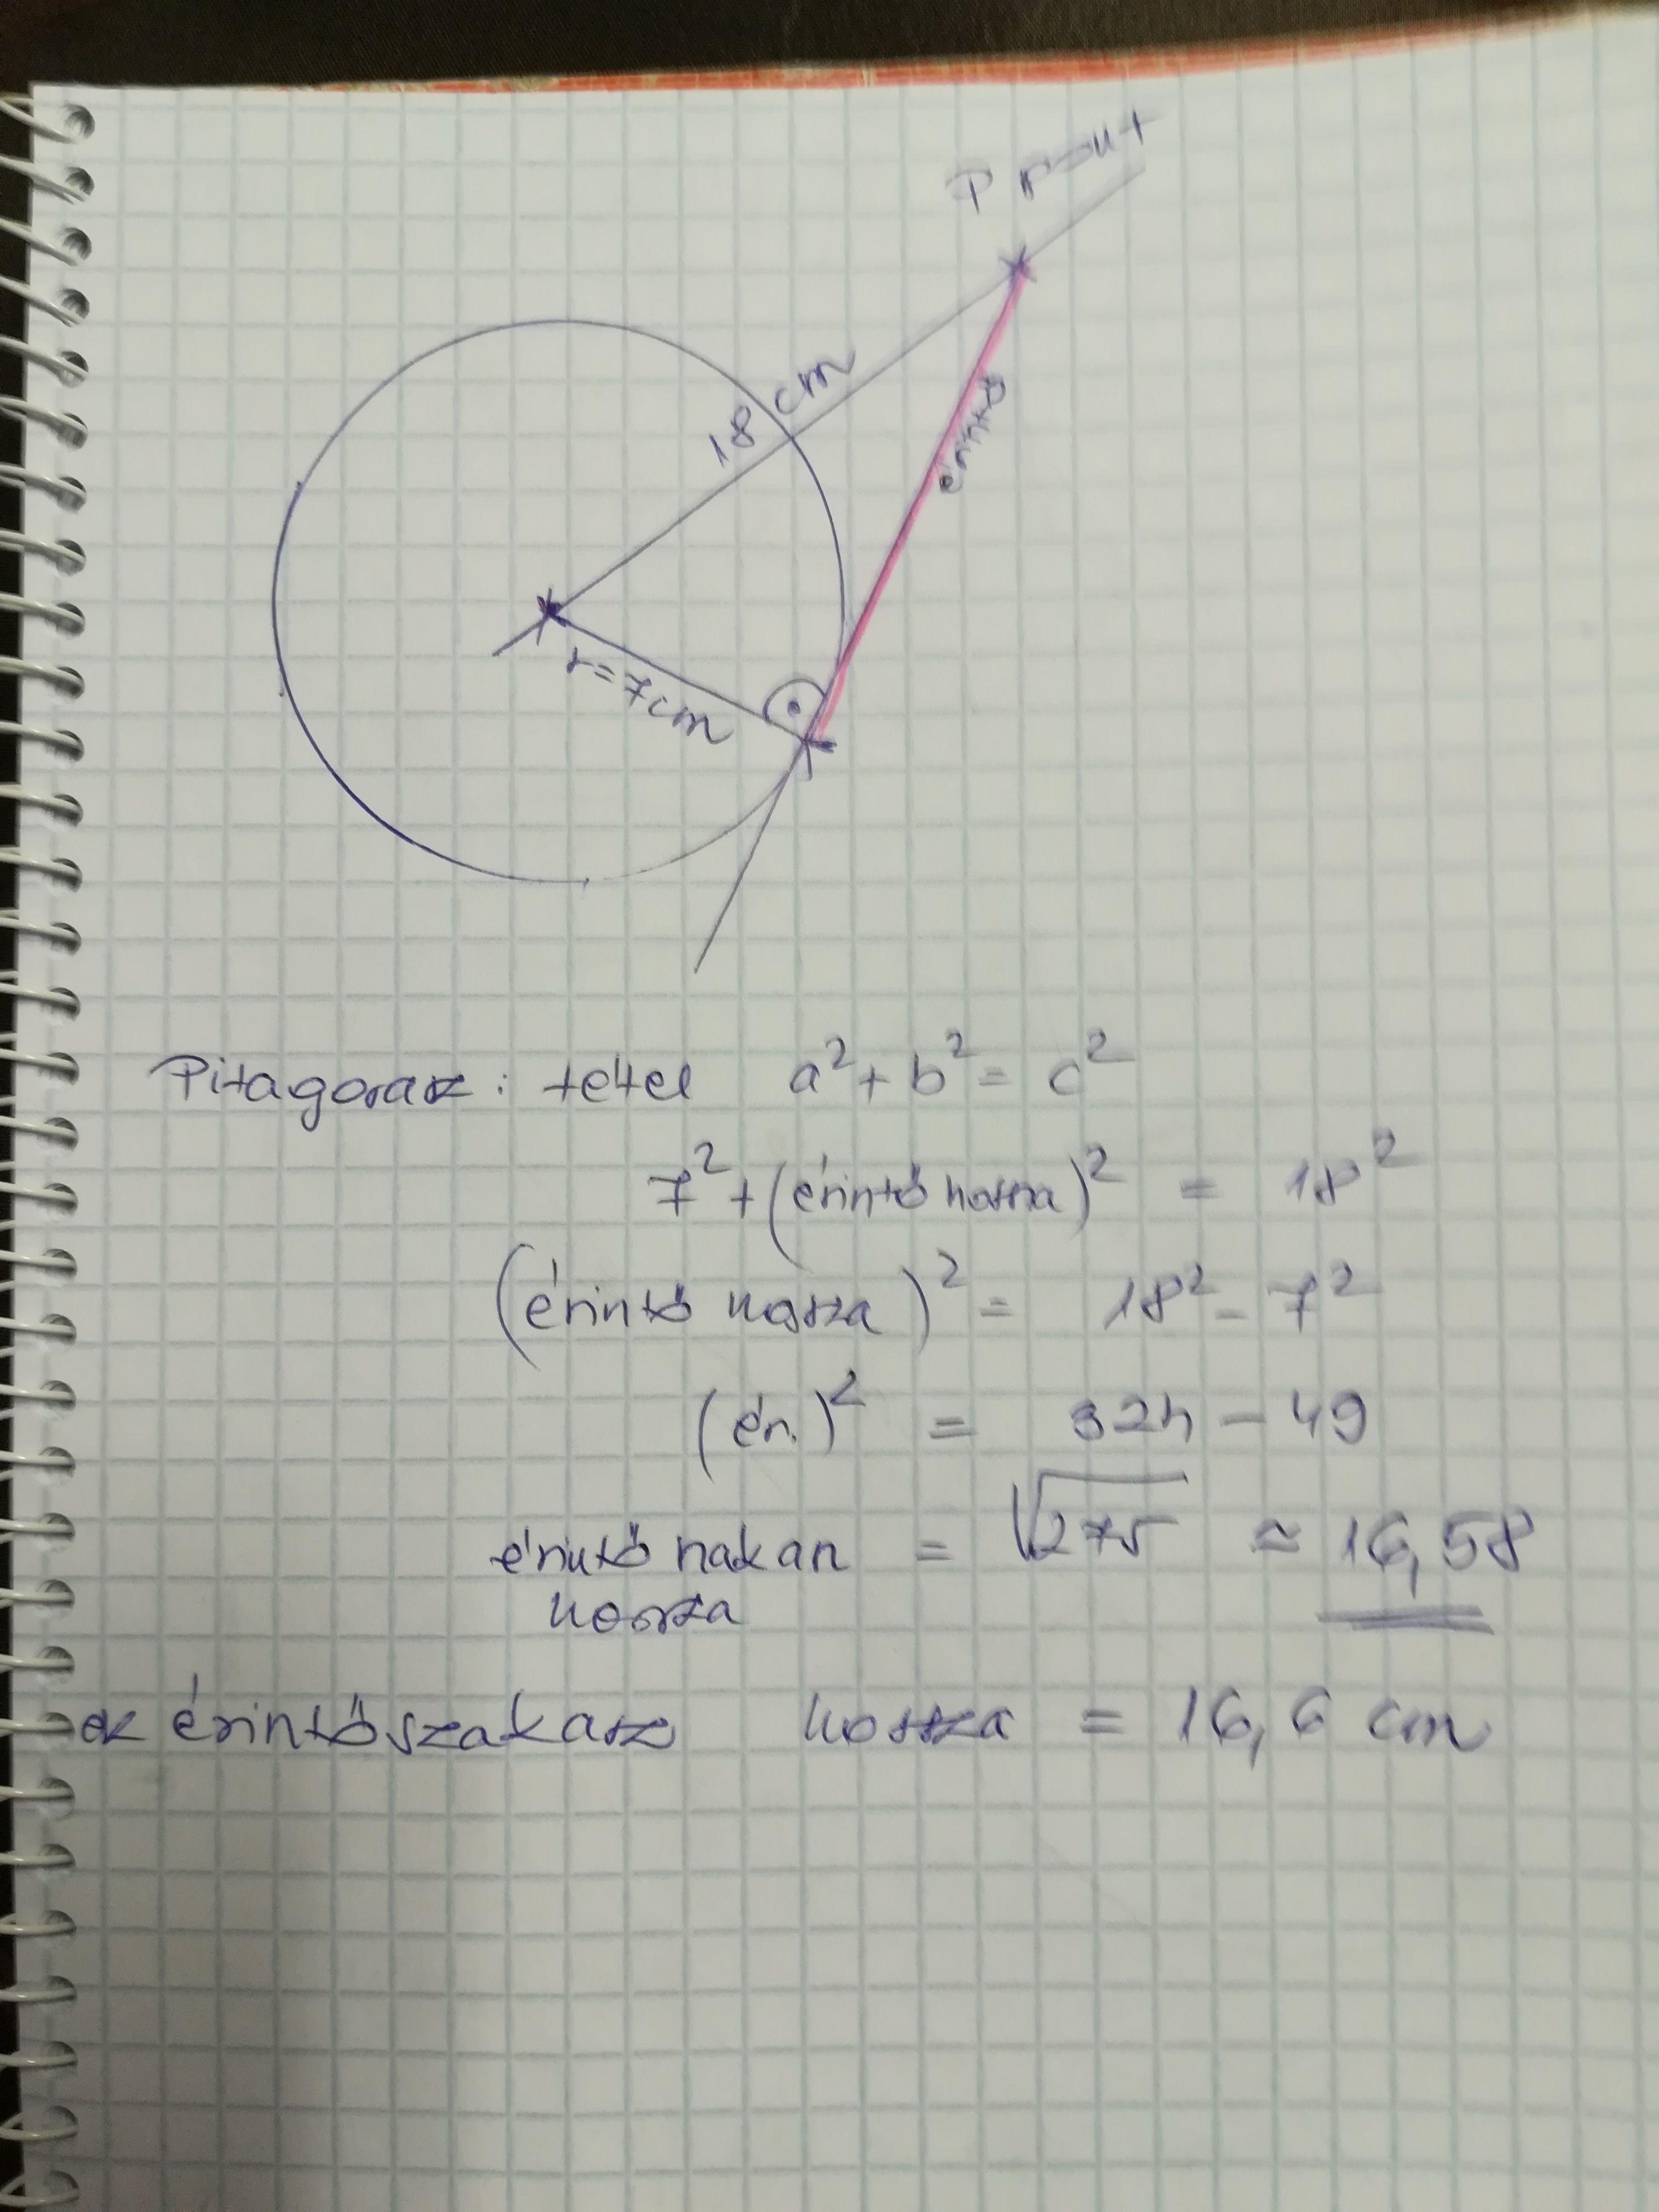 P pont
18 cm
érintő
r=7cm
Pitagorasz: tétel a²+b²= c²
7²+(érintő hossza)² = 18²
(érintő hossza)² = 18²-7²
(ér.)² = 324 - 49
érintő szakasz = √275 ≈ 16,58
hossza
az érintőszakasz hossza = 16,6 cm